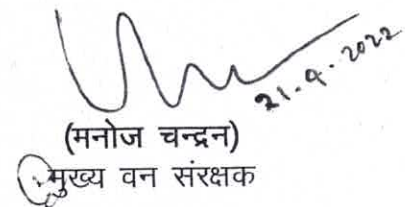 21.9.2022
(मनोज चन्द्रन)
मुख्य वन संरक्षक